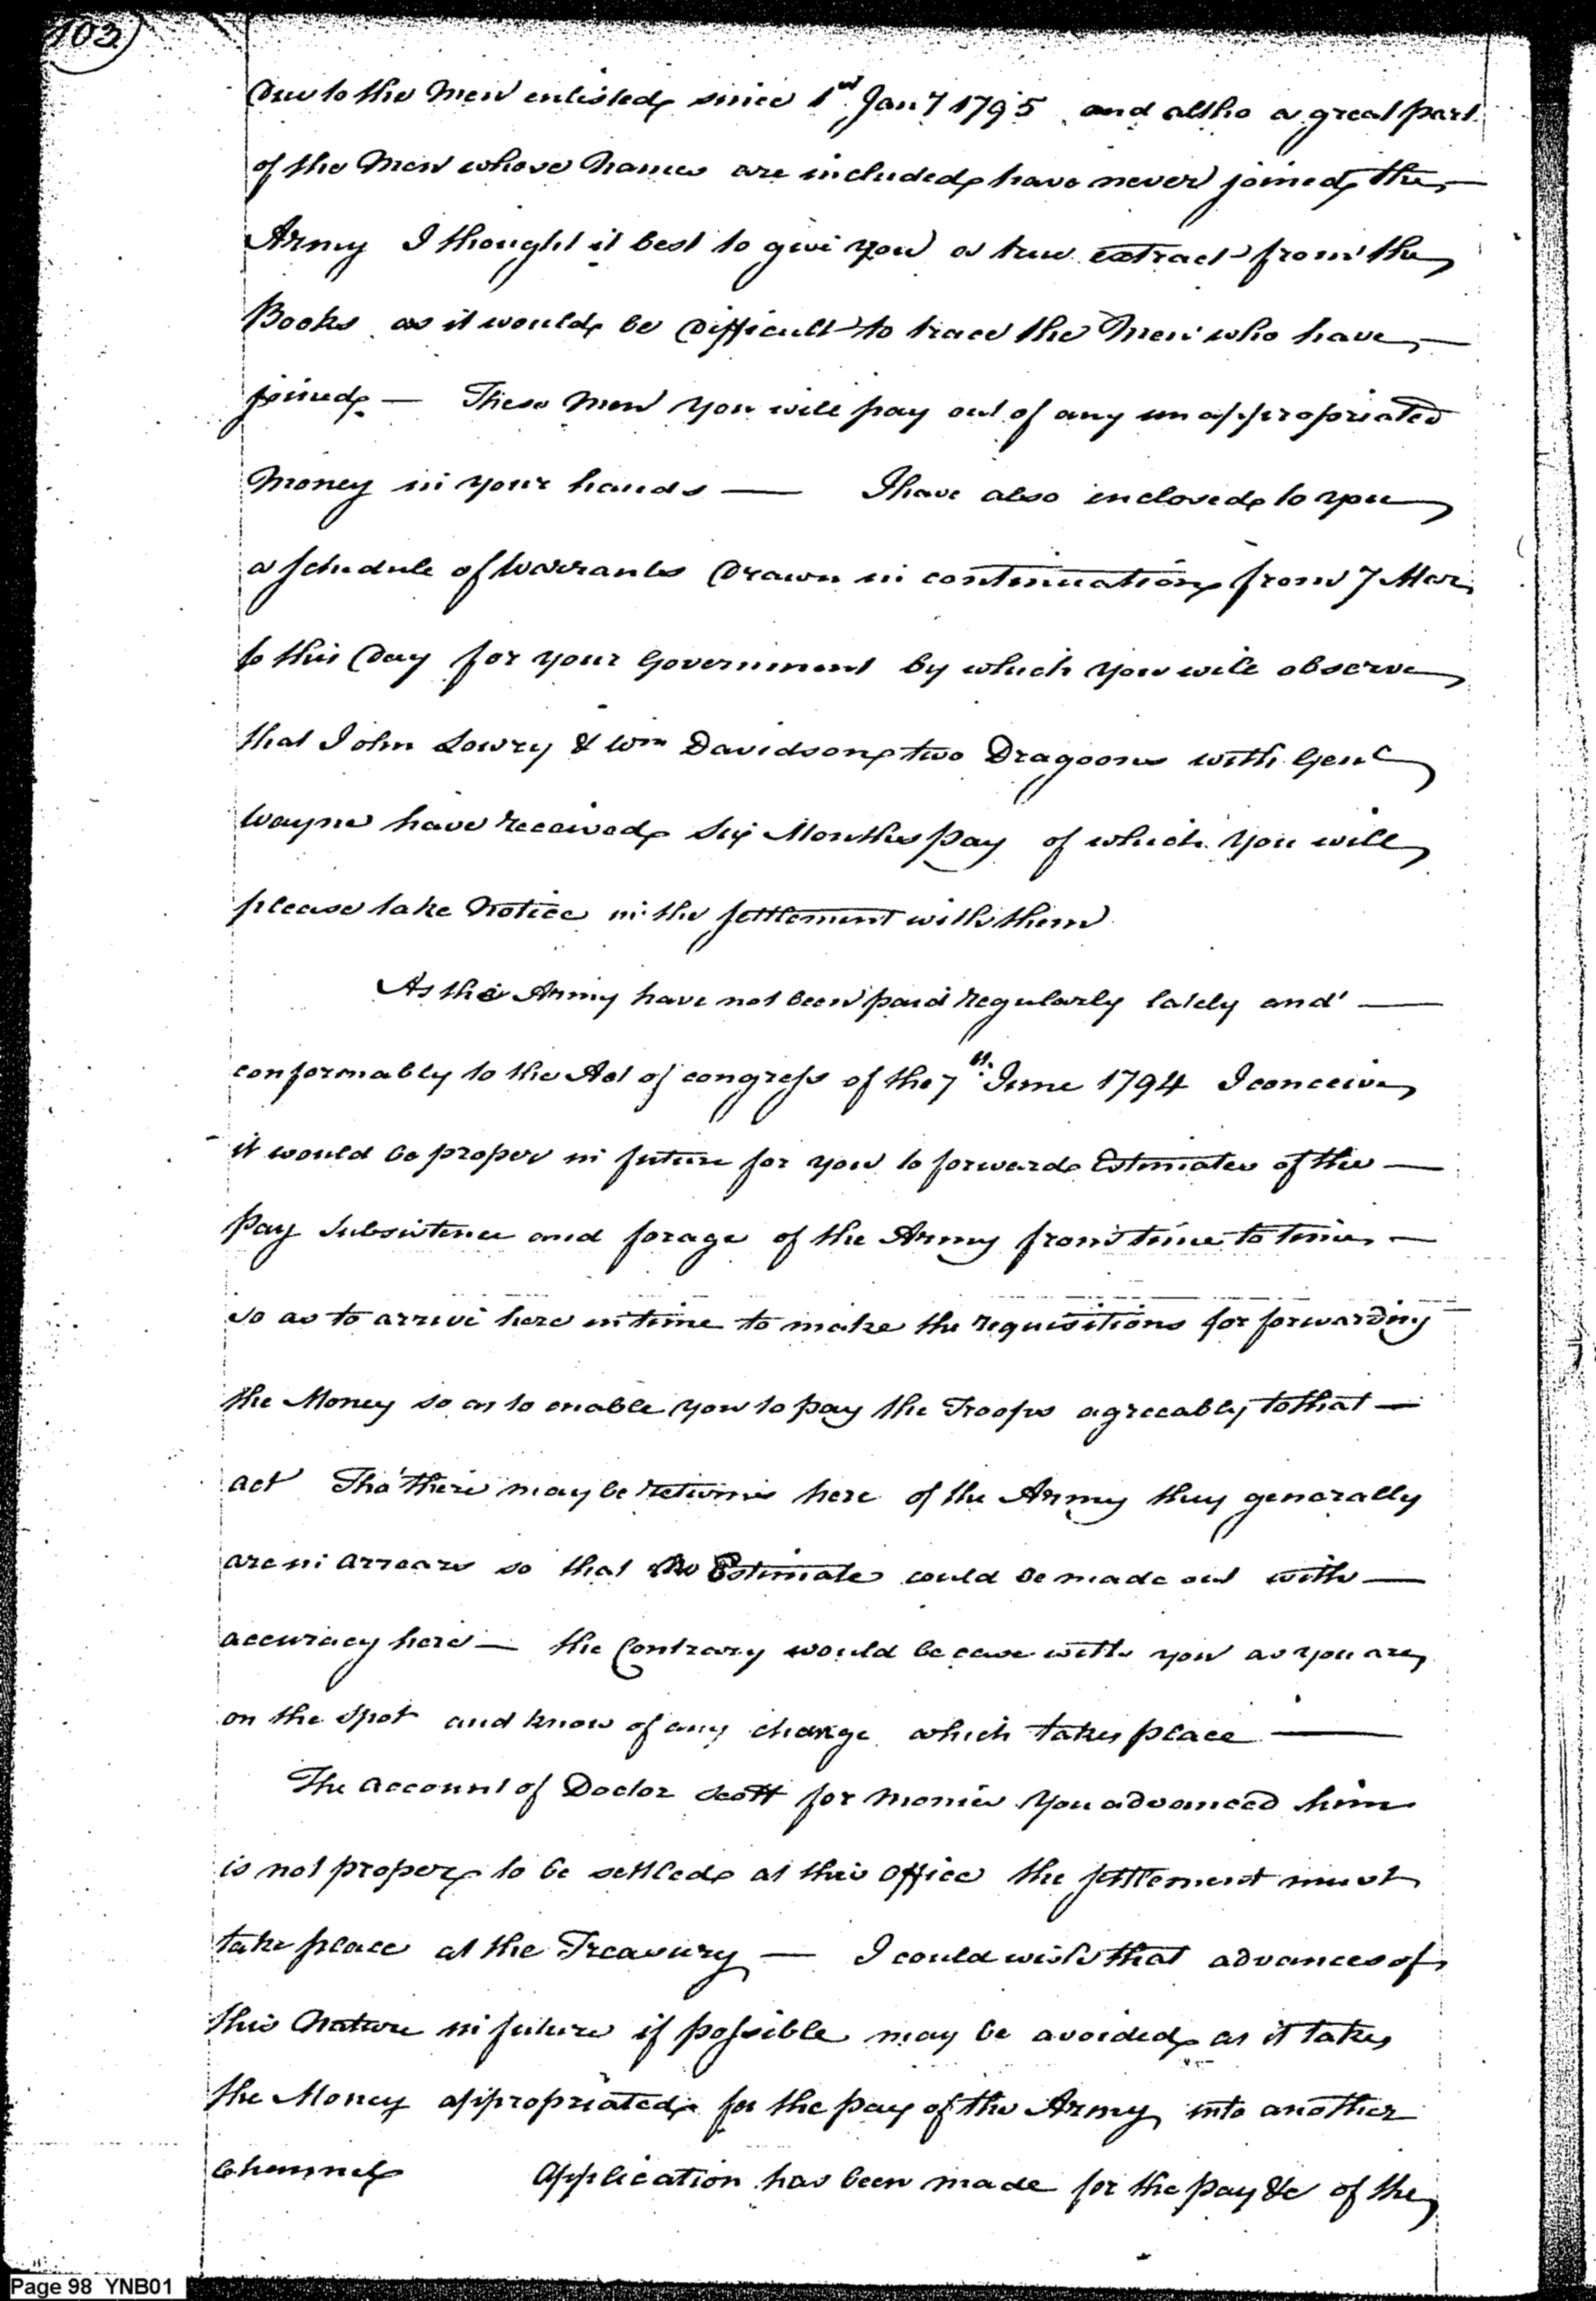 103
Due to the Men enlisted since 1st Jany 1795 and altho a great part
of the Men whose Names are included have never joined the
Army I thought it best to give you a true extract from the
Books as it would be Difficult to trace the Men who have
joined — These Men you will pay out of any unappropriated
Money in your hands — I have also inclosed to you
a Schedule of Warrants Drawn in continuation from 7 Mar
to this Day for your Government by which you will observe
that John Lowry & Wm Davidson two Dragoons with Genl
Wayne have received Six Months pay of which you will
please take Notice in the Settlement with them
As the Army have not been paid regularly lately and —
conformably to the Act of congress of the 7th June 1794 I conceive
it would be proper in future for you to forward Estimates of the —
pay Subsistence and forage of the Army from time to time —
so as to arrive here in time to make the requisitions for forwarding
the Money so as to enable you to pay the Troops agreeably to that —
act Tho' there may be returns here of the Army they generally
are in arrears so that no Estimate could be made out with —
accuracy here — the Contrary would be case with you as you are
on the spot and know of any change which takes place —
The account of Doctor Scott for monies you advanced him
is not proper to be settled at this office the settlement must
take place at the Treasury — I could wish that advances of
this Nature in future if possible may be avoided as it takes
the Money appropriated for the pay of the Army into another
Channel Application has been made for the pay &c of the
Page 98 YNB01